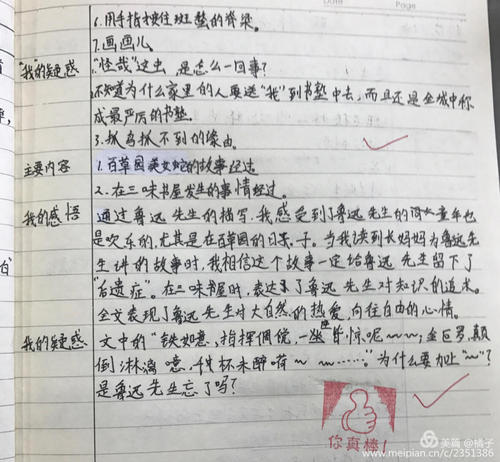 Date
Page
6.用手指按住斑蝥的脊梁。
7.画画儿
"我"的疑惑 1."怪哉"这虫,是怎么一回事?
不知道为什么家里的人要送"我"到书塾中去,而且还是全城中称
成最严厉的书塾。
3.抓鸟抓不到的缘由。
主要内容 1.百草园美女蛇的故事经过
2.在三味书屋发生的事情经过。
我的感悟 通过鲁迅先生的描写,我感受到了鲁迅先生的童年也
是快乐的,尤其是在百草园的日子。当我读到长妈妈为鲁迅先
生讲的故事时,我相信这个故事一定给鲁迅先生留下了
"后遗症"。在三味书屋时,表达了鲁迅先生对知识的追求。
全文表现了鲁迅先生对大自然的热爱,向往自由的心情。
我的疑惑 文中的"铁如意,指挥倜傥,一坐皆惊呢~~;金叵罗,颠
倒淋漓噫,千杯未醉嗬~~……"为什么要加上"~"?
是鲁迅先生忘了吗?
你真棒!
美篇 @橘子
www.meipian.cn/c/2351386